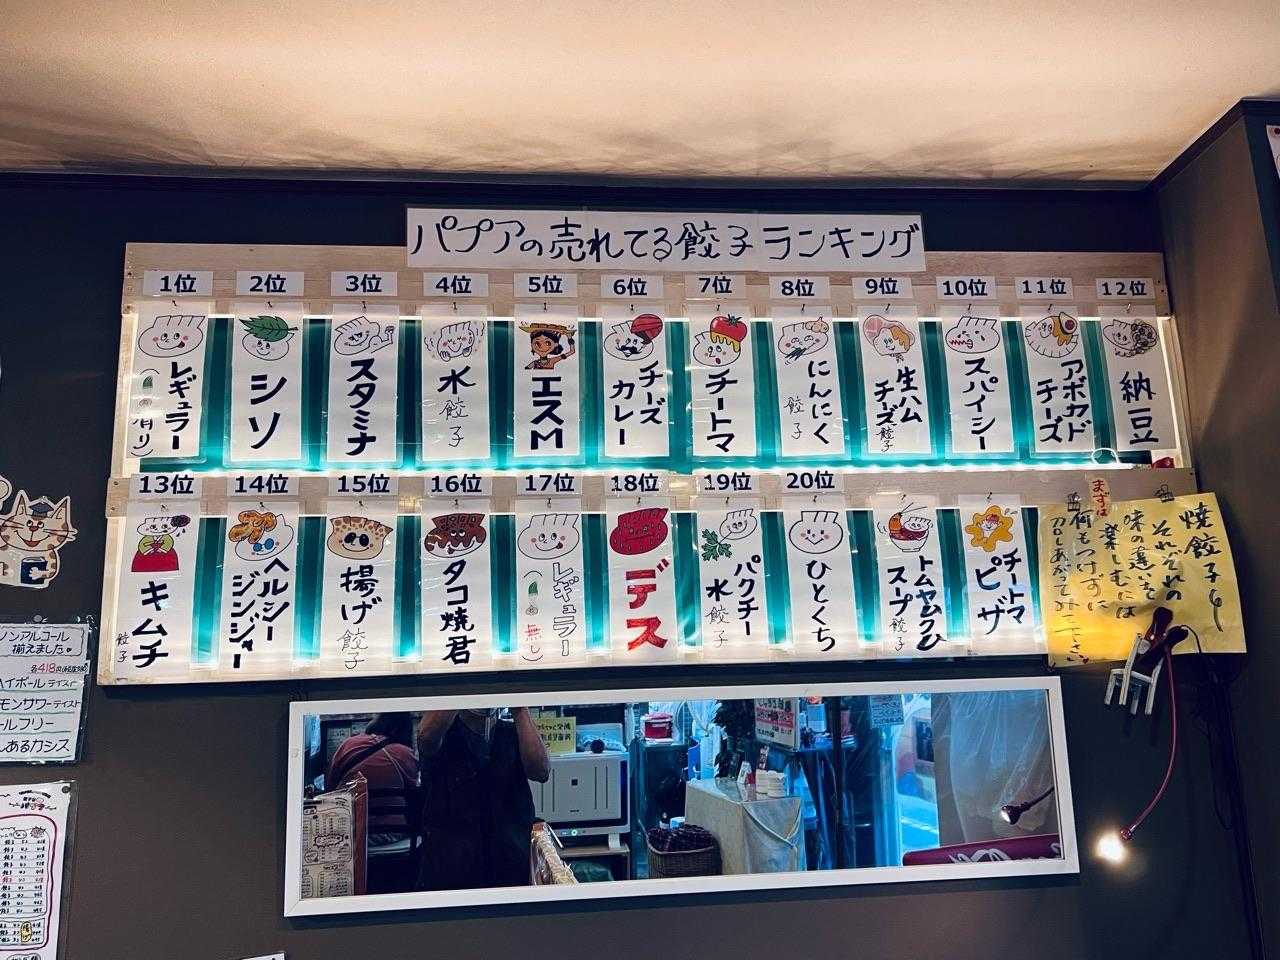 パプアの売れてる餃子ランキング
1位
2位
3位
4位
5位
6位
7位
8位
9位
10位
11位
12位
レギュラー
有り
シソ
スタミナ
水餃子
エスM
チーズ
カレー
チートマ
にんにく
餃子
生ハム
チーズ餃子
スパイシー
アボカド
チーズ
納豆
13位
14位
15位
16位
17位
18位
19位
20位
キムチ
餃子
ヘルシー
ジンジャー
揚げ餃子
タコ焼君
レギュラー
無し
デス
パクチー
水餃子
ひとくち
トムヤムクン
スープ餃子
チートマ
ピザ
焼餃子も
それぞれの
味の違いを
楽しむには
まずは
何もつけずに
召しあがってみて下さい
ノンアルコール
揃えました
各418円
ハイボールテイスト
モンサワーテイスト
ールフリー
あるカシス